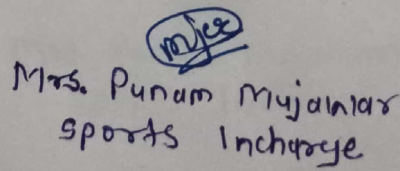 Mrs. Punam Mujalwar
Sports Incharge